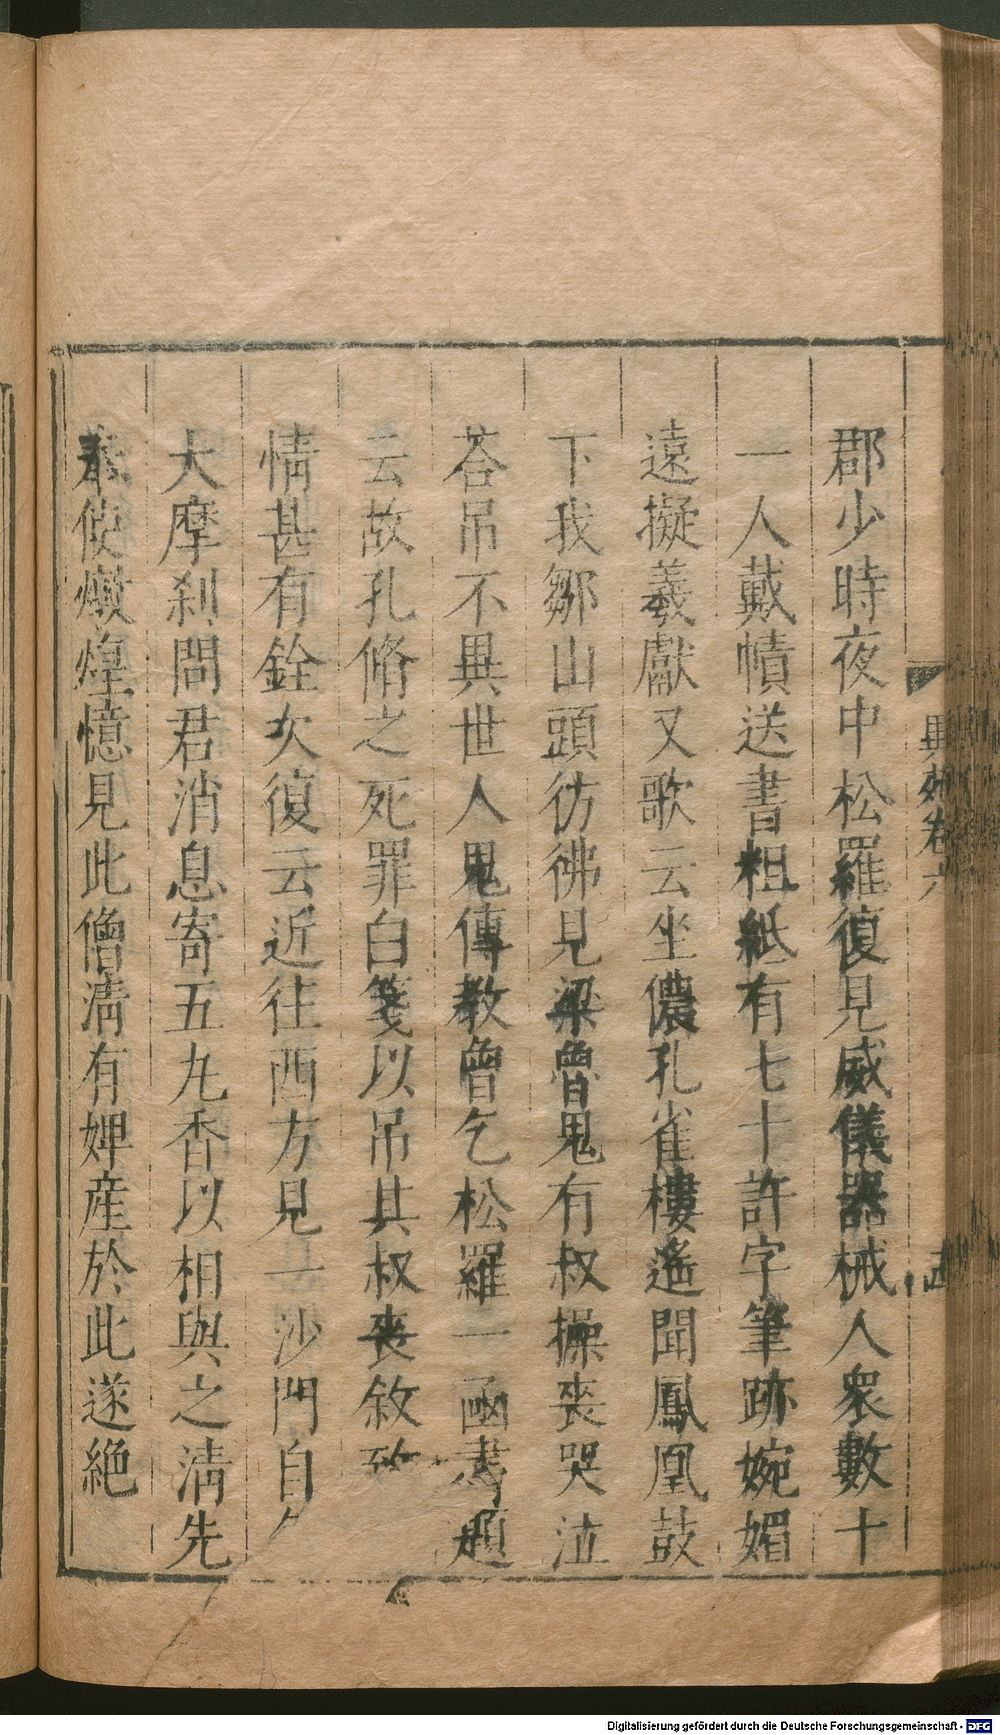 郡少時夜中松羅復見威儀器械人衆數十
一人戴幘送書粗紙有七十許字筆跡婉媚
遠擬羲獻又歌云坐儂孔雀樓遙聞鳳凰鼓
下我鄒山頭彷彿見梁魯鬼有叔操喪哭泣
荅吊不異世人鬼傳教曾乞松羅一凾書題
云故孔脩之死罪白箋以吊其叔喪敘致
情甚有銓次復云近往西方見一沙門自
大摩刹問君消息寄五九香以相與之淸先
奉使燉煌憶見此僧淸有婢産於此遂絶
異苑卷六
Digitalisierung gefördert durch die Deutsche Forschungsgemeinschaft - DFG